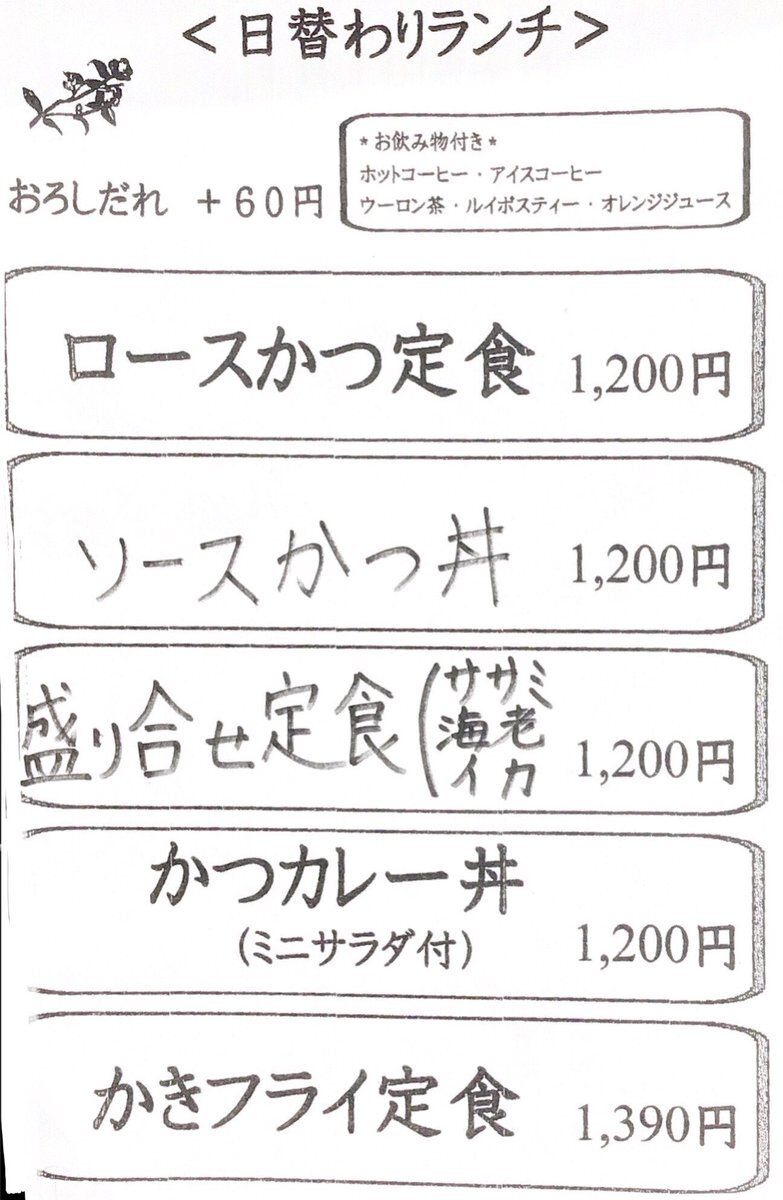 ＜日替わりランチ＞
おろしだれ ＋６０円
*お飲み物付き*
ホットコーヒー・アイスコーヒー
ウーロン茶・ルイボスティー・オレンジジュース
ロースかつ定食 1,200円
ソースかつ丼 1,200円
盛り合せ定食(ササミ
海老
イカ
1,200円
かつカレー丼
(ミニサラダ付) 1,200円
かきフライ定食 1,390円